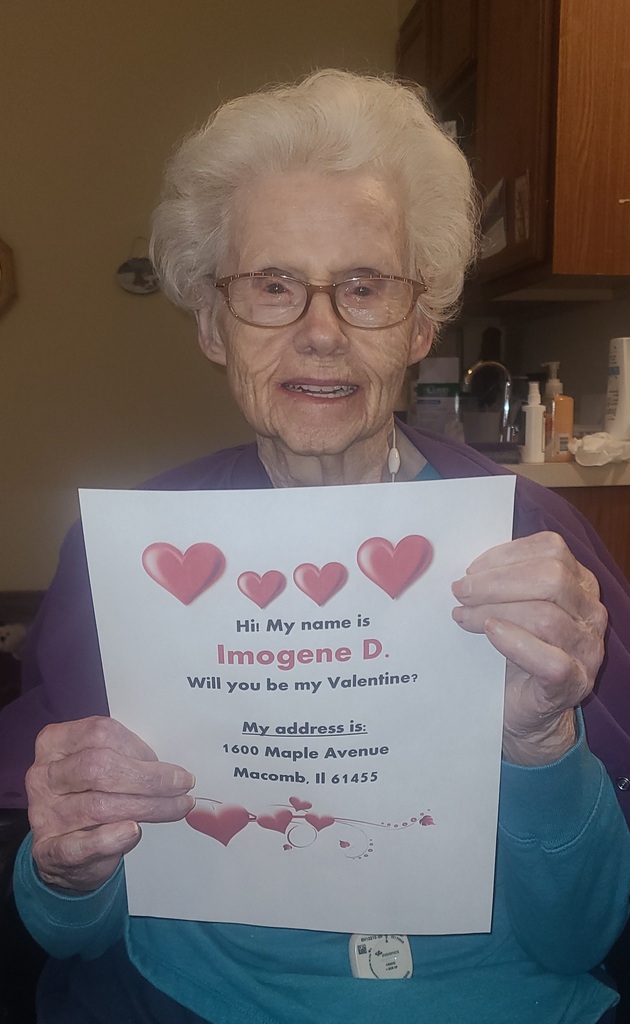 Hi! My name is
Imogene D.
Will you be my Valentine?
My address is:
1600 Maple Avenue
Macomb, Il 61455